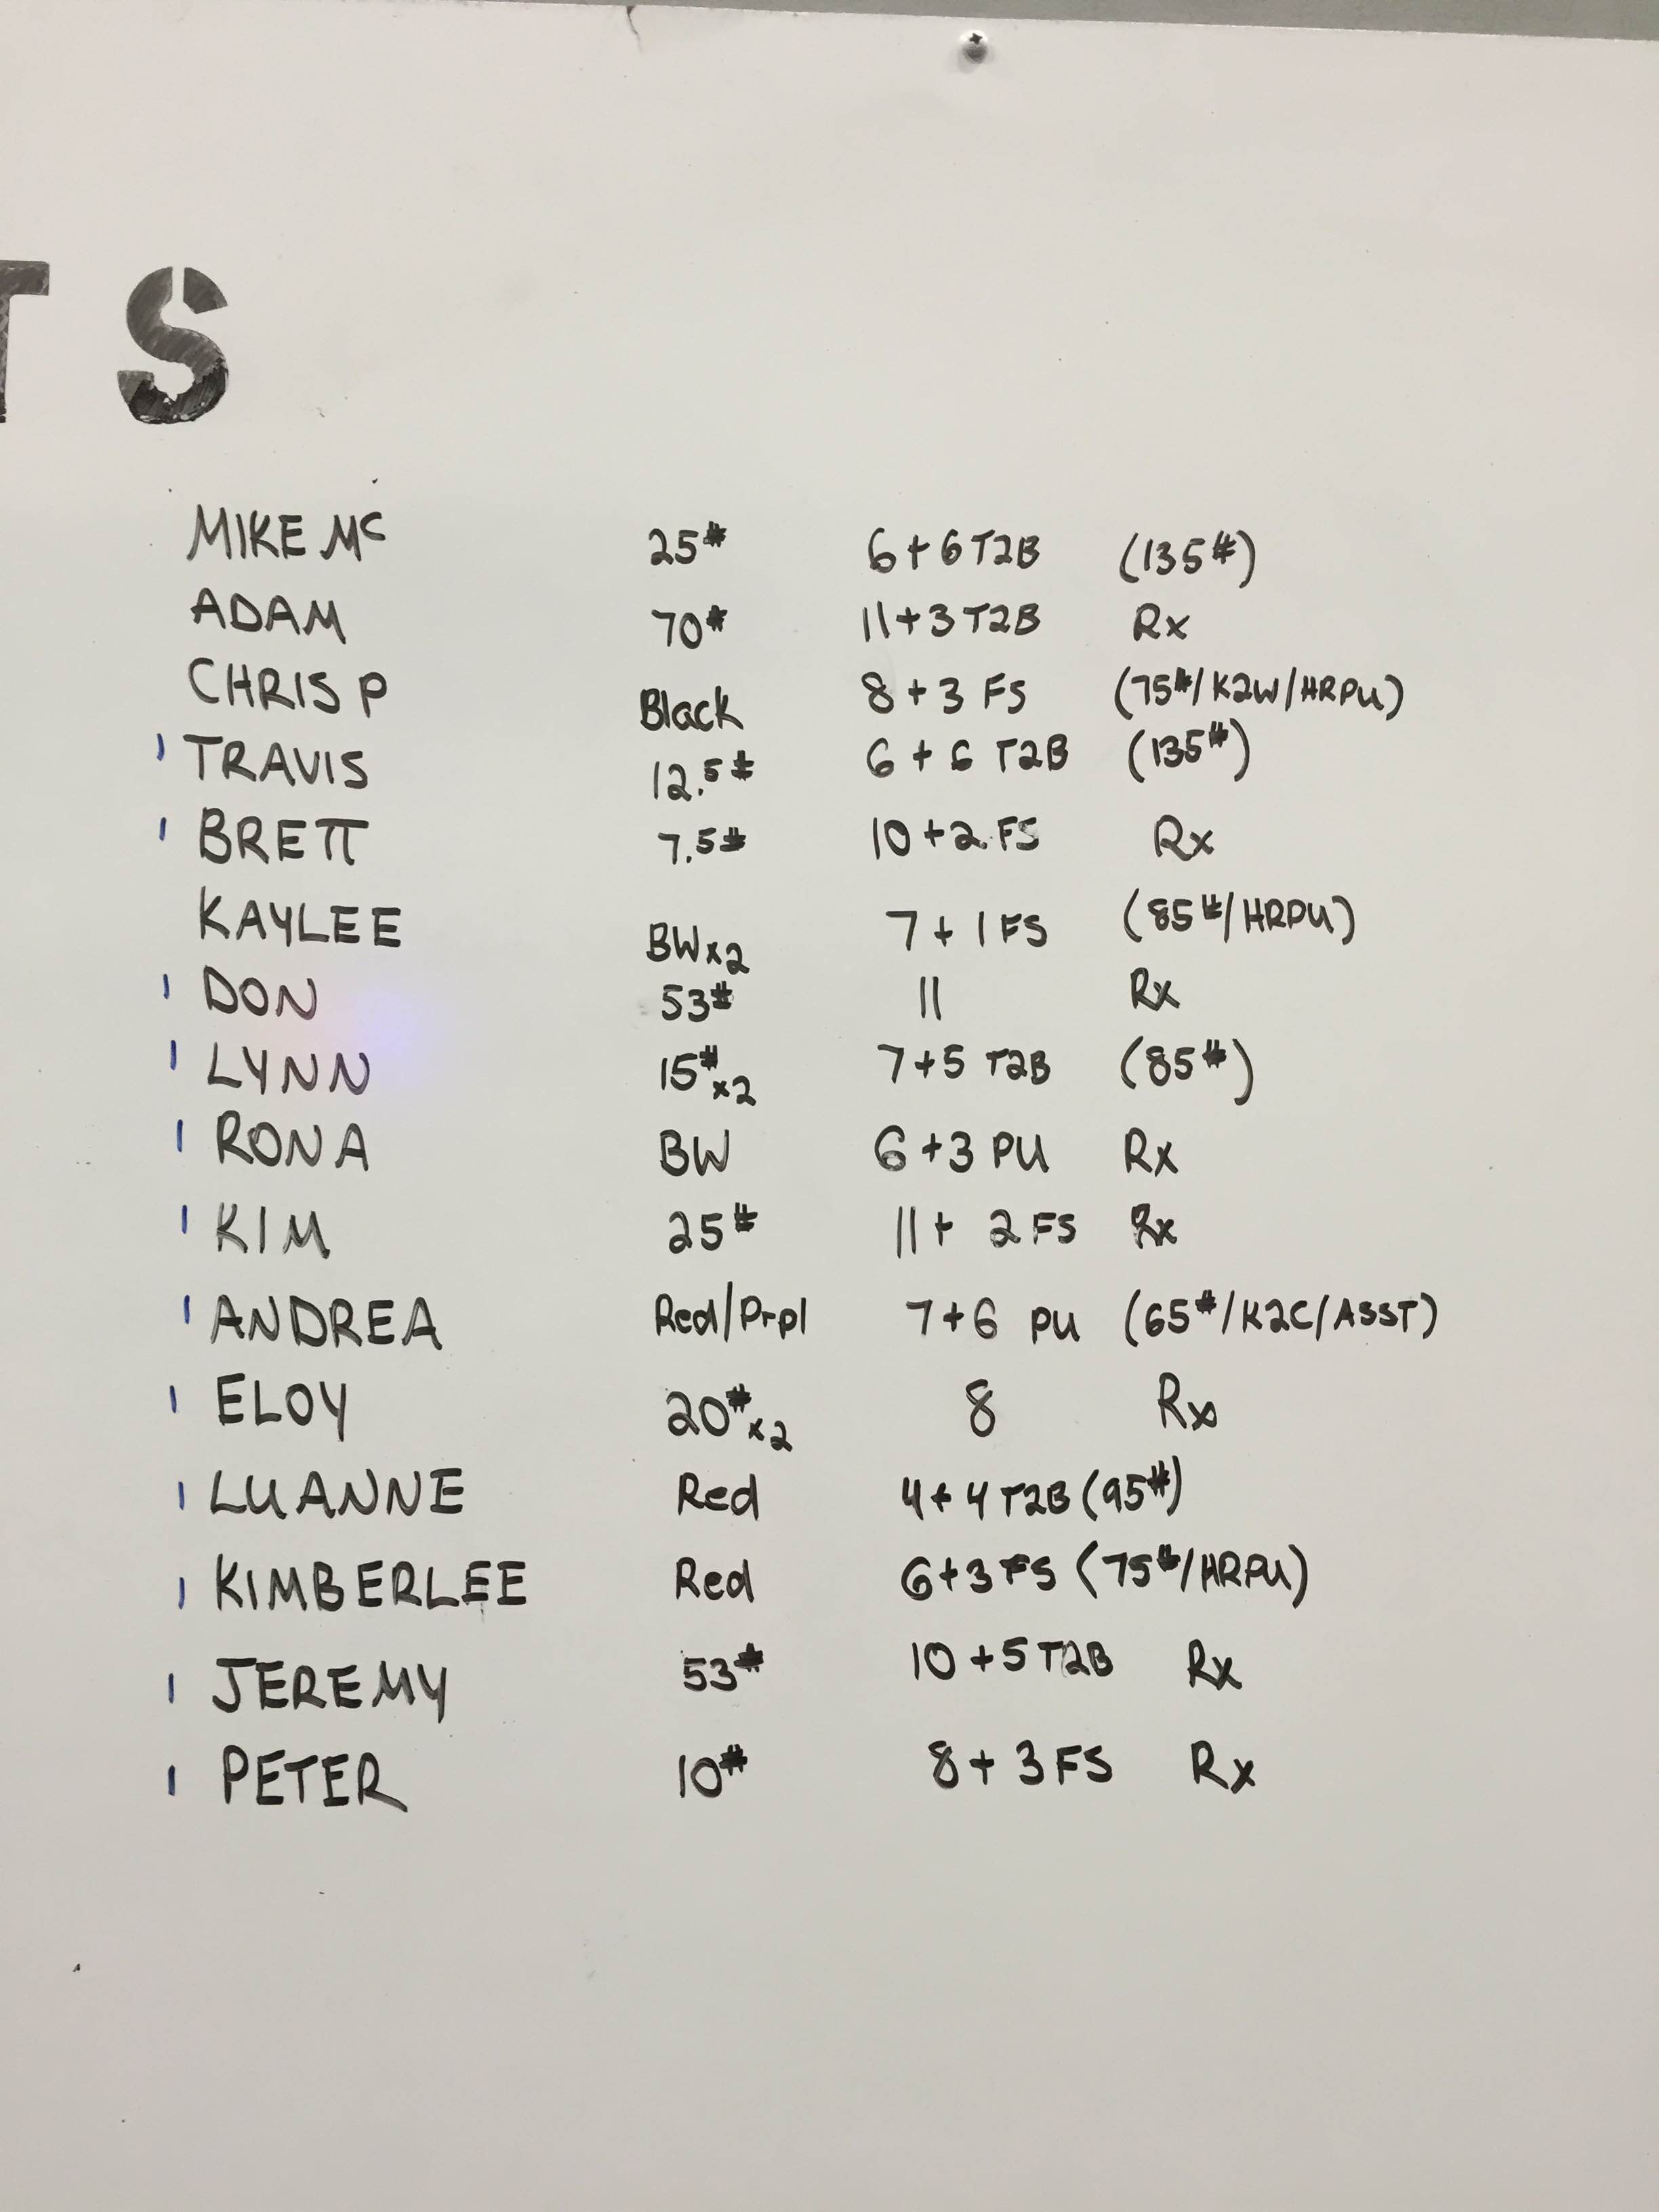 TS
MIKE MC 25# 6+6 T2B (135#)
ADAM 70# 11+3 T2B Rx
CHRIS P Black 8+3 FS (75#/K2W/HRPU)
TRAVIS 12.5# 6+6 T2B (135#)
BRETT 7.5# 10+2 FS Rx
KAYLEE BWx2 7+1 FS (85#/HRPU)
DON 53# 11 Rx
LYNN 15#x2 7+5 T2B (85#)
RONA BW 6+3 PU Rx
KIM 25# 11+ 2 FS Rx
ANDREA Red/Prpl 7+6 PU (65#/K2C/ASST)
ELOY 20#x2 8 Rx
LUANNE Red 4+4 T2B (95#)
KIMBERLEE Red 6+3 FS (75#/HRPU)
JEREMY 53# 10+5 T2B Rx
PETER 10# 8+3 FS Rx